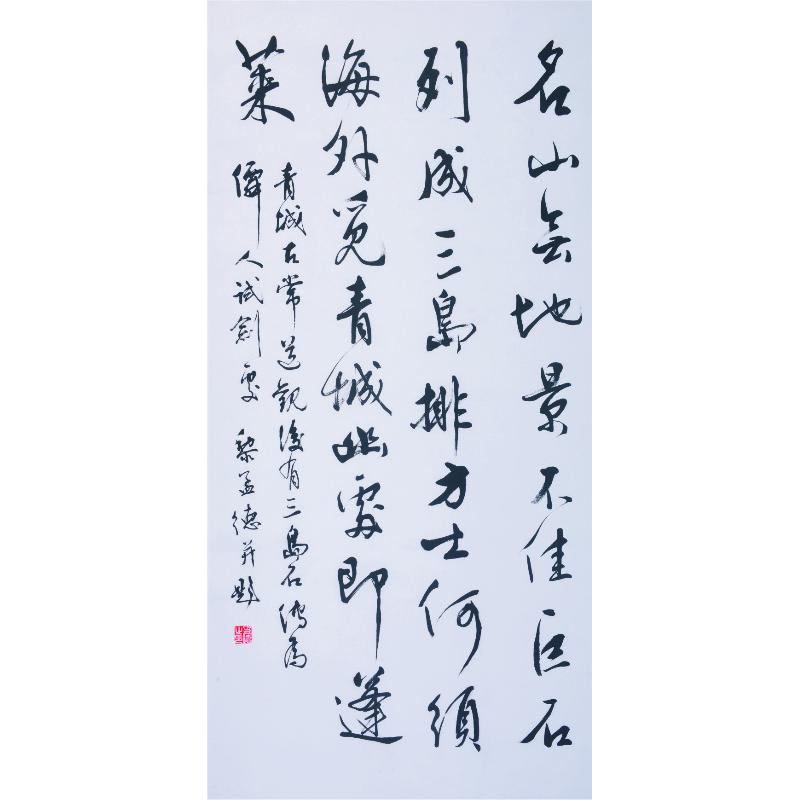 名山無地景不佳巨石
列成三島排方士何須
海外覓青城幽處即蓬
萊
青城古常道觀後有三島石傳為
僊人試劍處 黎孟德并題